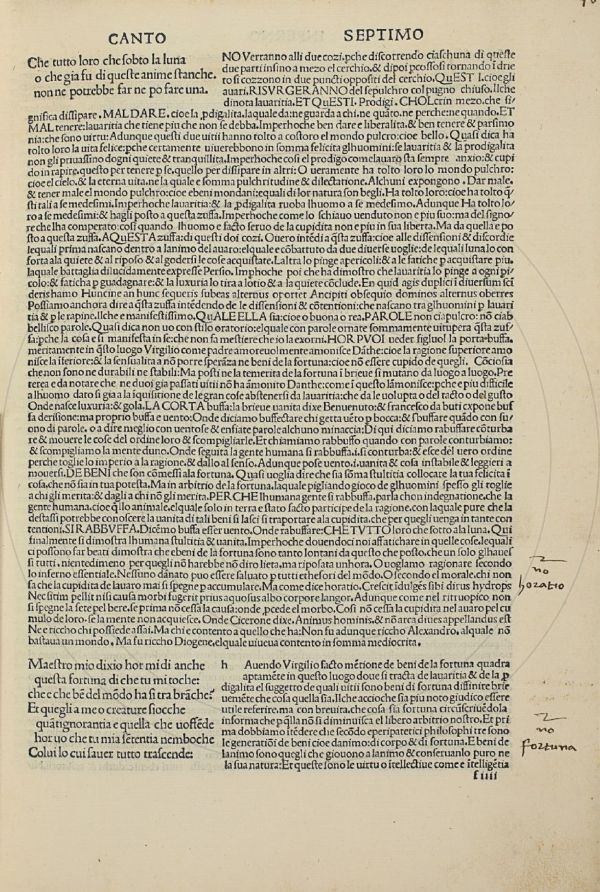 CANTO SEPTIMO
Che tutto loro che sobto la luna
o che gia fu di queste anime stanche.
non ne potrebbe far ne posare una.
NO Verranno alli due cozi. pche discorrendo ciaschuna di queste
due parti insino a mezo el cerchio. & dipoi pcossosi tornando idrie
to si cozzono in due puncti oppositi del cerchio. QuESTI. cioe gli
auari. RISVRGERANNO del sepulchro col pugno chiuso. Ilche
dinota lauaritia. ET QuESTI. Prodigi. CHOL crin mezo. che si
gnifica dissipare. MAL DARE. cioe la pdigalita. laquale da: ne guarda a chi. ne quãto. ne perche: ne quando. ET
MAL tenere: lauaritia che tiene piu che non se debba. Imperhoche ben dare e liberalita. & ben tenere & parsimo
nia: che sono uirtu: Adunque questi due uitii hanno tolto a costoro el mondo pulcro: cioe bello. Quasi dica ha
tolto loro la uita felice: pche certamente uiuerebbono in somma felicita glhuomini: se lauaritia & la prodigalita
non gli priuassino dogni quiete & tranquillita. Imperhoche cosi el prodigo come lauaro sta sempre anxio: & cupi
do in rapire. questo per tenere p se. quello per dissipare in altri: O ueramente ha tolto loro lo mondo pulchro:
cioe el cielo. & la eterna uita. ne la quale e somma pulchritudine & dilectatione. Alchuni expongono. Dar male.
& tener male el mondo pulchro: cioe ebeni mondani: equali di lor natura son begli. Ha tolto loro: cioe ha tolto q̃
sti tali a se medesimi. Imperhoche lauaritia: & la pdigalita ruoba lhuomo a se medesimo. Adunque Ha tolto lo
ro a se medesimi: & hagli posto a questa zuffa. Imperhoche come lo schiauo uenduto non e piu suo: ma del signo/
re che lha comperato: cosi quando lhuomo e facto seruo de la cupidita non e piu in sua liberta. Ma da quella e po
sto a questa zuffa. AQuESTA zuffa: di questi doi cozi. Ouero intẽdi a q̃sta zuffa: cioe alle dissensioni & discordie
lequali prima nascano dentro a lanimo del auaro: elquale e cõbattuto da due diuerse uoglie: de lequali luna lo con
forta ala quiete & al riposo & al godersi le cose acquistate. Laltra lo pinge apericoli: & a le fatiche p acquistare piu.
laquale battaglia dilucidamente expresse Persio. Imphoche poi che ha dimostro che lauaritia lo pinge a ogni pi/
colo: & faticha p guadagnare: & la luxuria lo tira a lotio & a la quiete cõclude. En quid agis duplici ĩ diuersum sci
deris hamo Hunccine an hunc sequeris subeas alternus oportet Ancipiti obsequio dominos alternus oberres
Possiamo anchora dire a q̃sta zuffa intẽdendo de le dissensioni & cõtentioni: che nascano tra glhuomini p lauari
tia & p le rapine. Ilche e manifestissimo. QuALE ELLA sia: cioe o buona o rea. PAROLE non ci apulcro: nõ ciab
bellisco parole. Quasi dica non uo con stilo oratorio: elquale con parole ornate sommamente uitupera q̃sta zuf/
fa: pche la cosa e si manifesta in se: che non fa mestiere che io la exorni. HOR PVOI ueder figluol la porta buffa.
meritamente in q̃sto luogo Virgilio come padre amoreuolmente amonisce Dãthe: cioe la ragione superiore amo
nisce la inferiore: & la sensualita a nõ porre speranza ne beni de la fortuna: cioe nõ essere cupido de quegli. Cõciosia
cosa che non sono ne durabili ne stabili: Ma posti ne la temerita de la fortuna ĩ brieue si mutano da luogo a luogo. Pre
terea e da notare che ne duoi gia passati uitii nõ ha amonito Danthe: come ĩ questo lãmonisce: pche e piu difficile
a lhuomo darsi gia a la iquisitione de le gran cose abstenersi da lauaritia: che da le uolupta o del tacto o del gusto
Onde nasce luxuria: & gola. LA CORTA buffa: la brieue uanita dixe Benuenuto: & francesco da buti expone buf
fa derisone: ma proprio buffa e uento: Onde diciamo buffecare chi getta uẽto p bocca: & sbuffare quãdo con suo/
ono di parole. o a dire meglio con uentose & enfiate parole alchuno minaccia: Di qui diciamo rabuffare cõturba
re & mouere le cose del ordine loro & scompigliarle. Et chiamiamo rabbuffo quando con parole conturbiamo:
& scompigliamo la mente duno. Onde seguita la gente humana si rabbuffa. i. si conturba: & esce dẽl uero ordine
perche toglie lo imperio a la ragione. & dallo al senso. Adunque pose uento. i. uanita & cosa instabile & leggieri a
mouersi. DE BENI che son cõmessi ala fortuna. Quasi uoglia dire che sia sõma stultitia collocare la tua felicita ĩ
cosa. che nõ sia in tua potesta. Ma in arbitrio de la fortuna. laquale pigliando gioco de glhuomini spesso gli toglie
a chi gli merita: & dagli a chi nõ gli merita. PERCHE lhumana gente si rabbuffa. parla chon indegnatione. che la
gente humana. cioe q̃llo animale. elquale solo in terra e stato facto participe de la ragione. con laquale pure che la
destassi potrebbe conoscere la uanita di tali beni si lasci si traportare a la cupidita. che per quegli uenga in tante con
tentioni. SI RABBVFFA. Dicẽmo buffa esser uento. Onde rabuffare: CHE TVTTO loro che sotto a la luna. Qui
finalmente si dimostra lhumana stultitia & uanita. imperhoche douendoci noi affatichare in quelle cose. lequali
ci possono far beati dimostra che ebeni de la fortuna sono tanto lontani da questo che posto. che un solo glhaues
si tutti. nientedimeno per quegli nõ harebbe nõ diro lieta. ma riposata unhora. O uogliamo ragionare secondo
lo inferno essentiale. Nessuno dãnato puo essere saluato p tutti ethesori del mõdo. O secondo el morale. chi non
sa che la cupidita de lauaro mai si spegne p accumulare. Ma come dice horatio. Crescit ĩdulgẽs sibi dirus hydrops
Nec sitim pellit nisi causa morbi fugerit prius aquosus albo corpore languor. Adunque come nel ritruopico non
si spegne la sete pel bere. se prima nõ cessa la causa: onde pcede el morbo. Cosi nõ cessa la cupidita nel auaro pel cu
mulo de loro: se la mente non acquiesce. Onde Cicerone dixe. Animus hominis. & nõ area diues appellandus est
Ne e riccho chi possiede assai. Ma chi e contento a quello che ha: Non fu adunque riccho Alexandro. al quale nõ
bastaua un mondo. Ma fu riccho Diogene. elquale uiuea contento in somma mediocrita.
no
horatio
Maestro mio dixio hor mi di anche
questa fortuna di che tu mi toche:
che e che bẽ del mõdo ha si tra brãche?
Et quegli a me o creature sioche
quãta ignorantia e quella che uoffẽde
hor uo che tu mia sententia nemboche
Colui lo cui sauer tutto trascende:
h Auendo Virgilio facto mẽtione de beni de la fortuna quadra
aptamẽte in questo luogo doue si tracta de lauaritia & de la p
digalita el suggetto de quali uitii sono beni di fortuna diffinite brie
uemẽte che cosa quella sia. Ilche accioche sia piu noto giudico essere
utile referire. ma con breuita. che cosa sia fortuna circũscriuẽdola
informa che p q̃lla nõ si diminuisca el libero arbitrio nostro. Et pri
ma dobbiamo ĩtẽdere che secõdo eperipatetici philosophi tre sono
le generationi de beni cioe danimo: di corpo & di fortuna. E beni de
lanimo sono quegli che giouono a lanimo & conseruanlo puro ne
la sua natura: Et queste sono le uirtu o ĩtellectiue come e ĩtelligẽtia
no
fortuna
f iiii